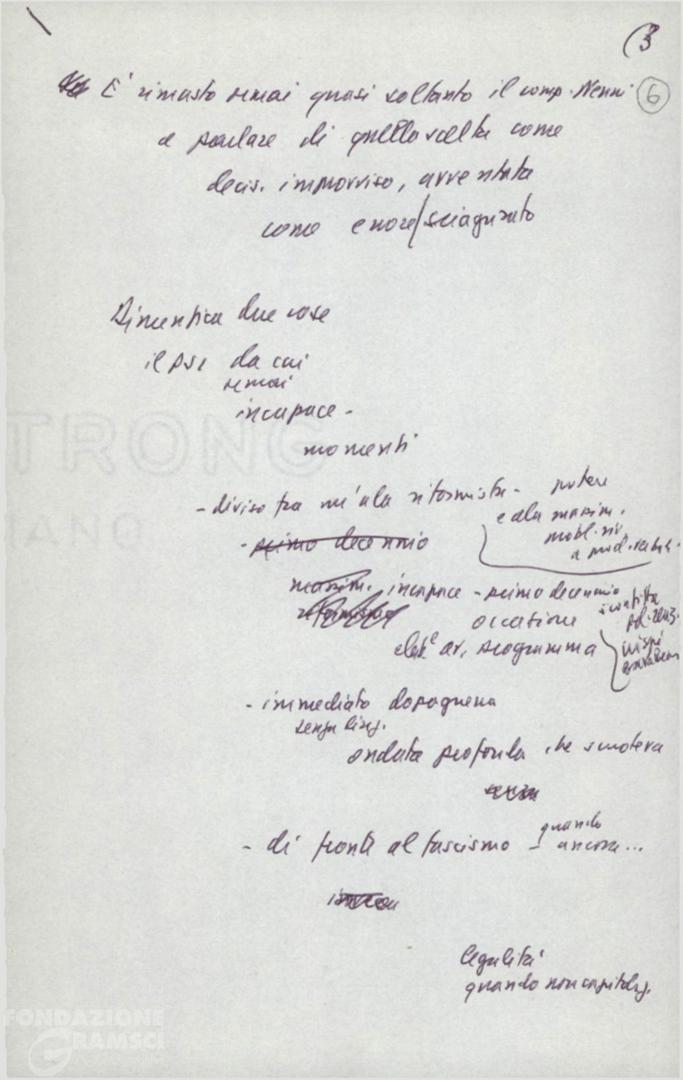 (3
6
È rimasto ormai quasi soltanto il comp. Nenni
a parlare di quella scelta come
decis. improvvisa, avventata
come errore/sciagurato
Dimentica due cose
il PSI da cui
ormai
incapace -
momenti
- diviso tra un'ala riformista -
e ala massim.
mobl. riv.
- primo decennio
massim. incapace - primo decennio
occasione
elab.e av. programma
- immediato dopoguerra
senza
ondata profonda che scuoteva
- di fronte al fascismo - quando
ancora...
legalità
quando non capitolaz.
TRONG
IANO
FONDAZIONE
GRAMSCI